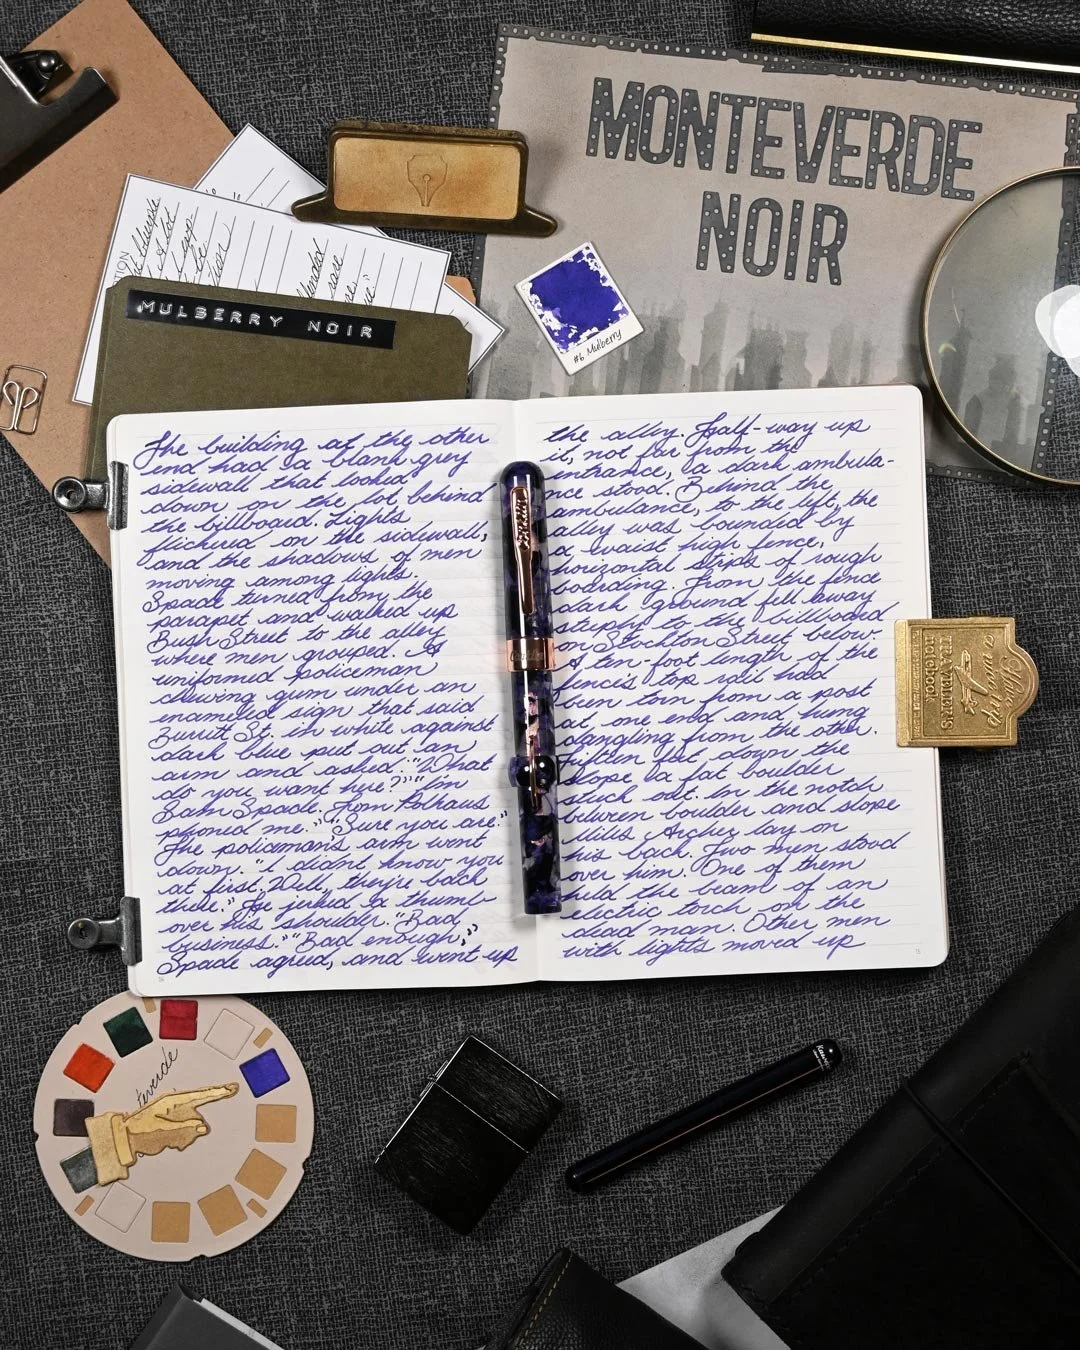 MONTEVERDE
NOIR
MULBERRY NOIR
#6 Mulberry
The building at the other
end had a blank grey
sidewall that looked
down on the lot behind
the billboard. Lights
flickered on the sidewall,
and the shadows of men
moving among lights.
Spade turned from the
parapet and walked up
Bush Street to the alley
where men grouped. A
uniformed policeman
chewing gum under an
enameled sign that said
Burritt St. in white against
dark blue put out an
arm and asked: "What
do you want here?" "I'm
Sam Spade. Tom Polhaus
phoned me." "Sure you are."
The policeman's arm went
down. "I didn't know you
at first. Well, they're back
there." He jerked a thumb
over his shoulder. "Bad
business." "Bad enough,"
Spade agreed, and went up
the alley. Half-way up
it, not far from the
entrance, a dark ambula-
nce stood. Behind the
ambulance, to the left, the
alley was bounded by
a waist high fence,
horizontal strips of rough
boarding. From the fence
dark ground fell away
steeply to the billboard
on Stockton Street below.
A ten-foot length of the
fence's top rail had
been torn from a post
at one end and hung
dangling from the other.
Fifteen feet down the
slope a fat boulder
stuck out. In the notch
between boulder and slope
Miles Archer lay on
his back. Two men stood
over him. One of them
held the beam of an
electric torch on the
dead man. Other men
with lights moved up
TRAVELER'S
notebook